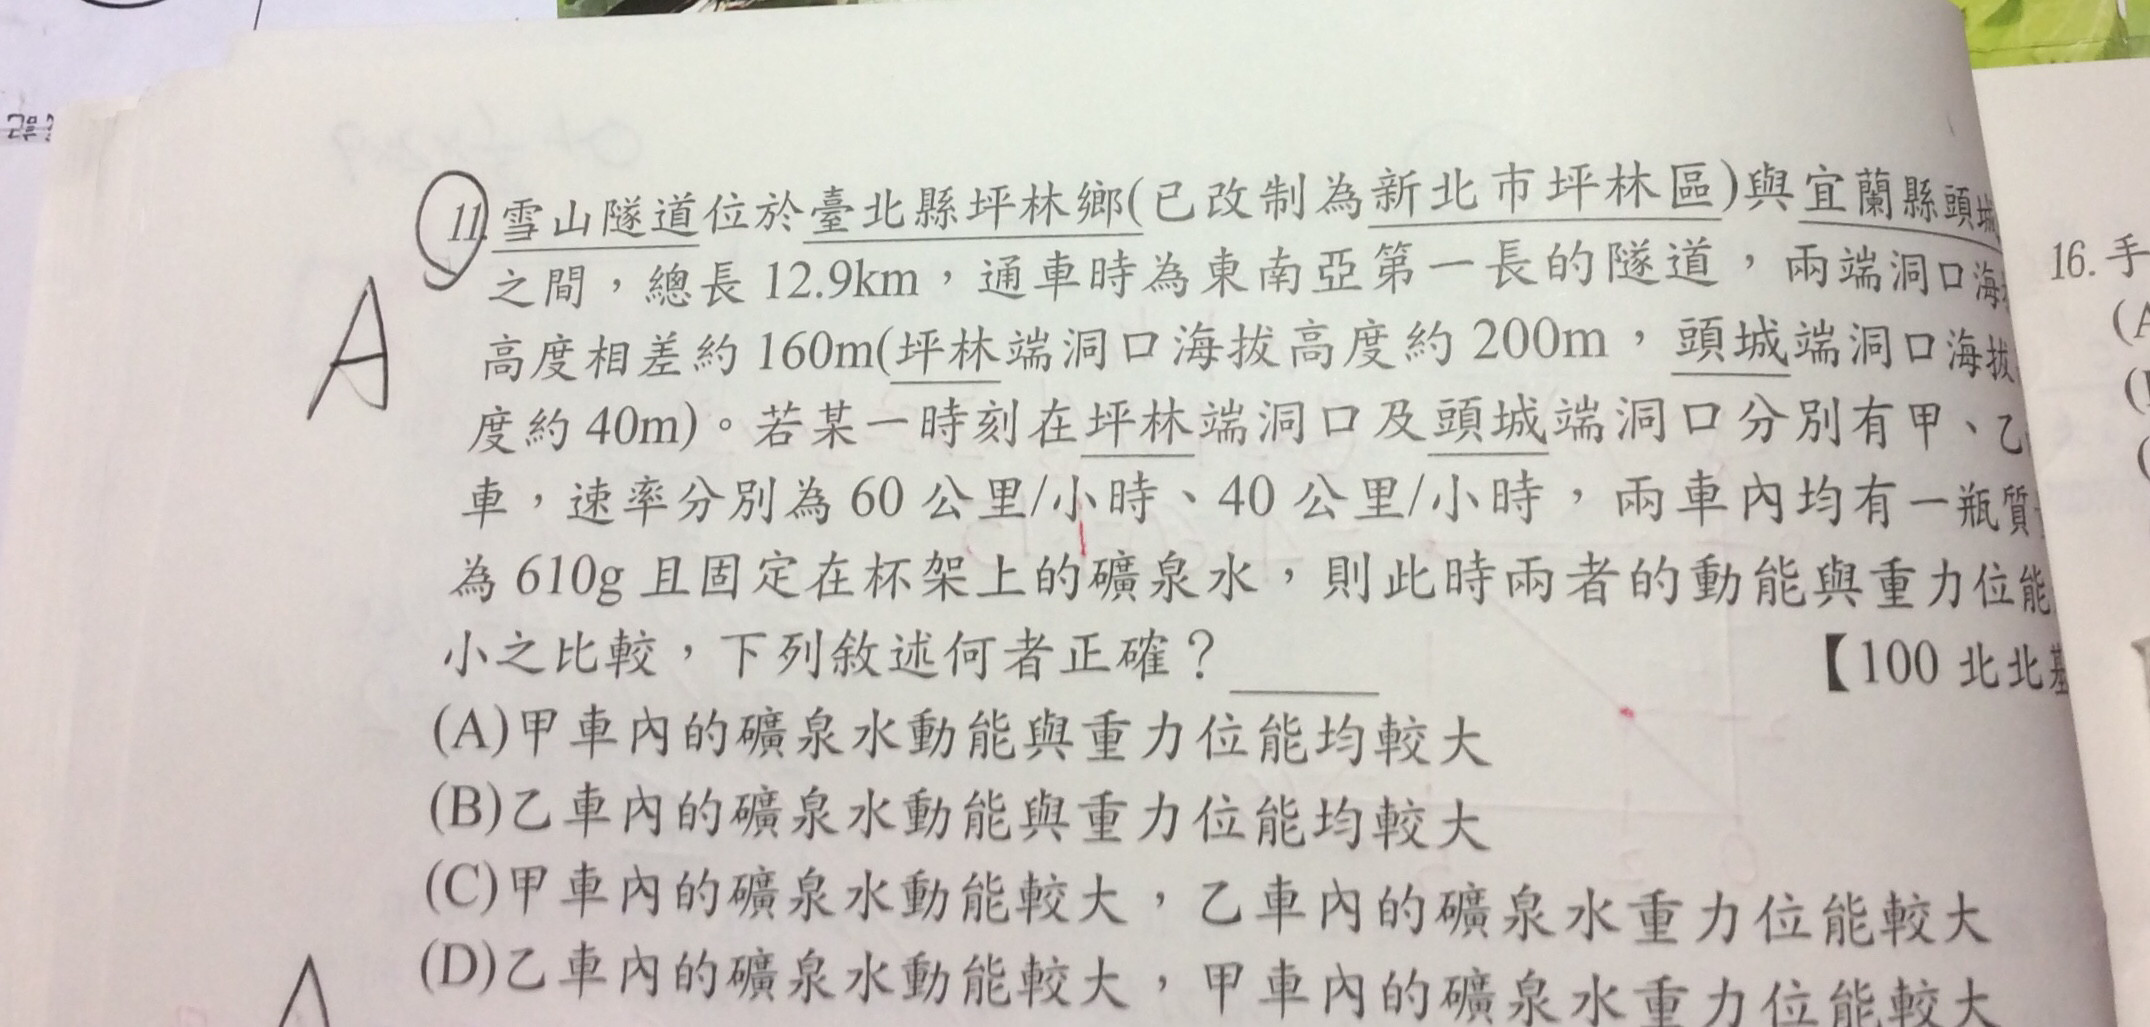 11.雪山隧道位於臺北縣坪林鄉(已改制為新北市坪林區)與宜蘭縣頭城
之間，總長 12.9km，通車時為東南亞第一長的隧道，兩端洞口海
高度相差約 160m(坪林端洞口海拔高度約 200m，頭城端洞口海拔
度約 40m)。若某一時刻在坪林端洞口及頭城端洞口分別有甲、乙
車，速率分別為 60 公里/小時、40 公里/小時，兩車內均有一瓶質
為 610g 且固定在杯架上的礦泉水，則此時兩者的動能與重力位能
小之比較，下列敘述何者正確？
【100 北北基
(A)甲車內的礦泉水動能與重力位能均較大
(B)乙車內的礦泉水動能與重力位能均較大
(C)甲車內的礦泉水動能較大，乙車內的礦泉水重力位能較大
(D)乙車內的礦泉水動能較大，甲車內的礦泉水重力位能較大
A
A
16. 手
(A